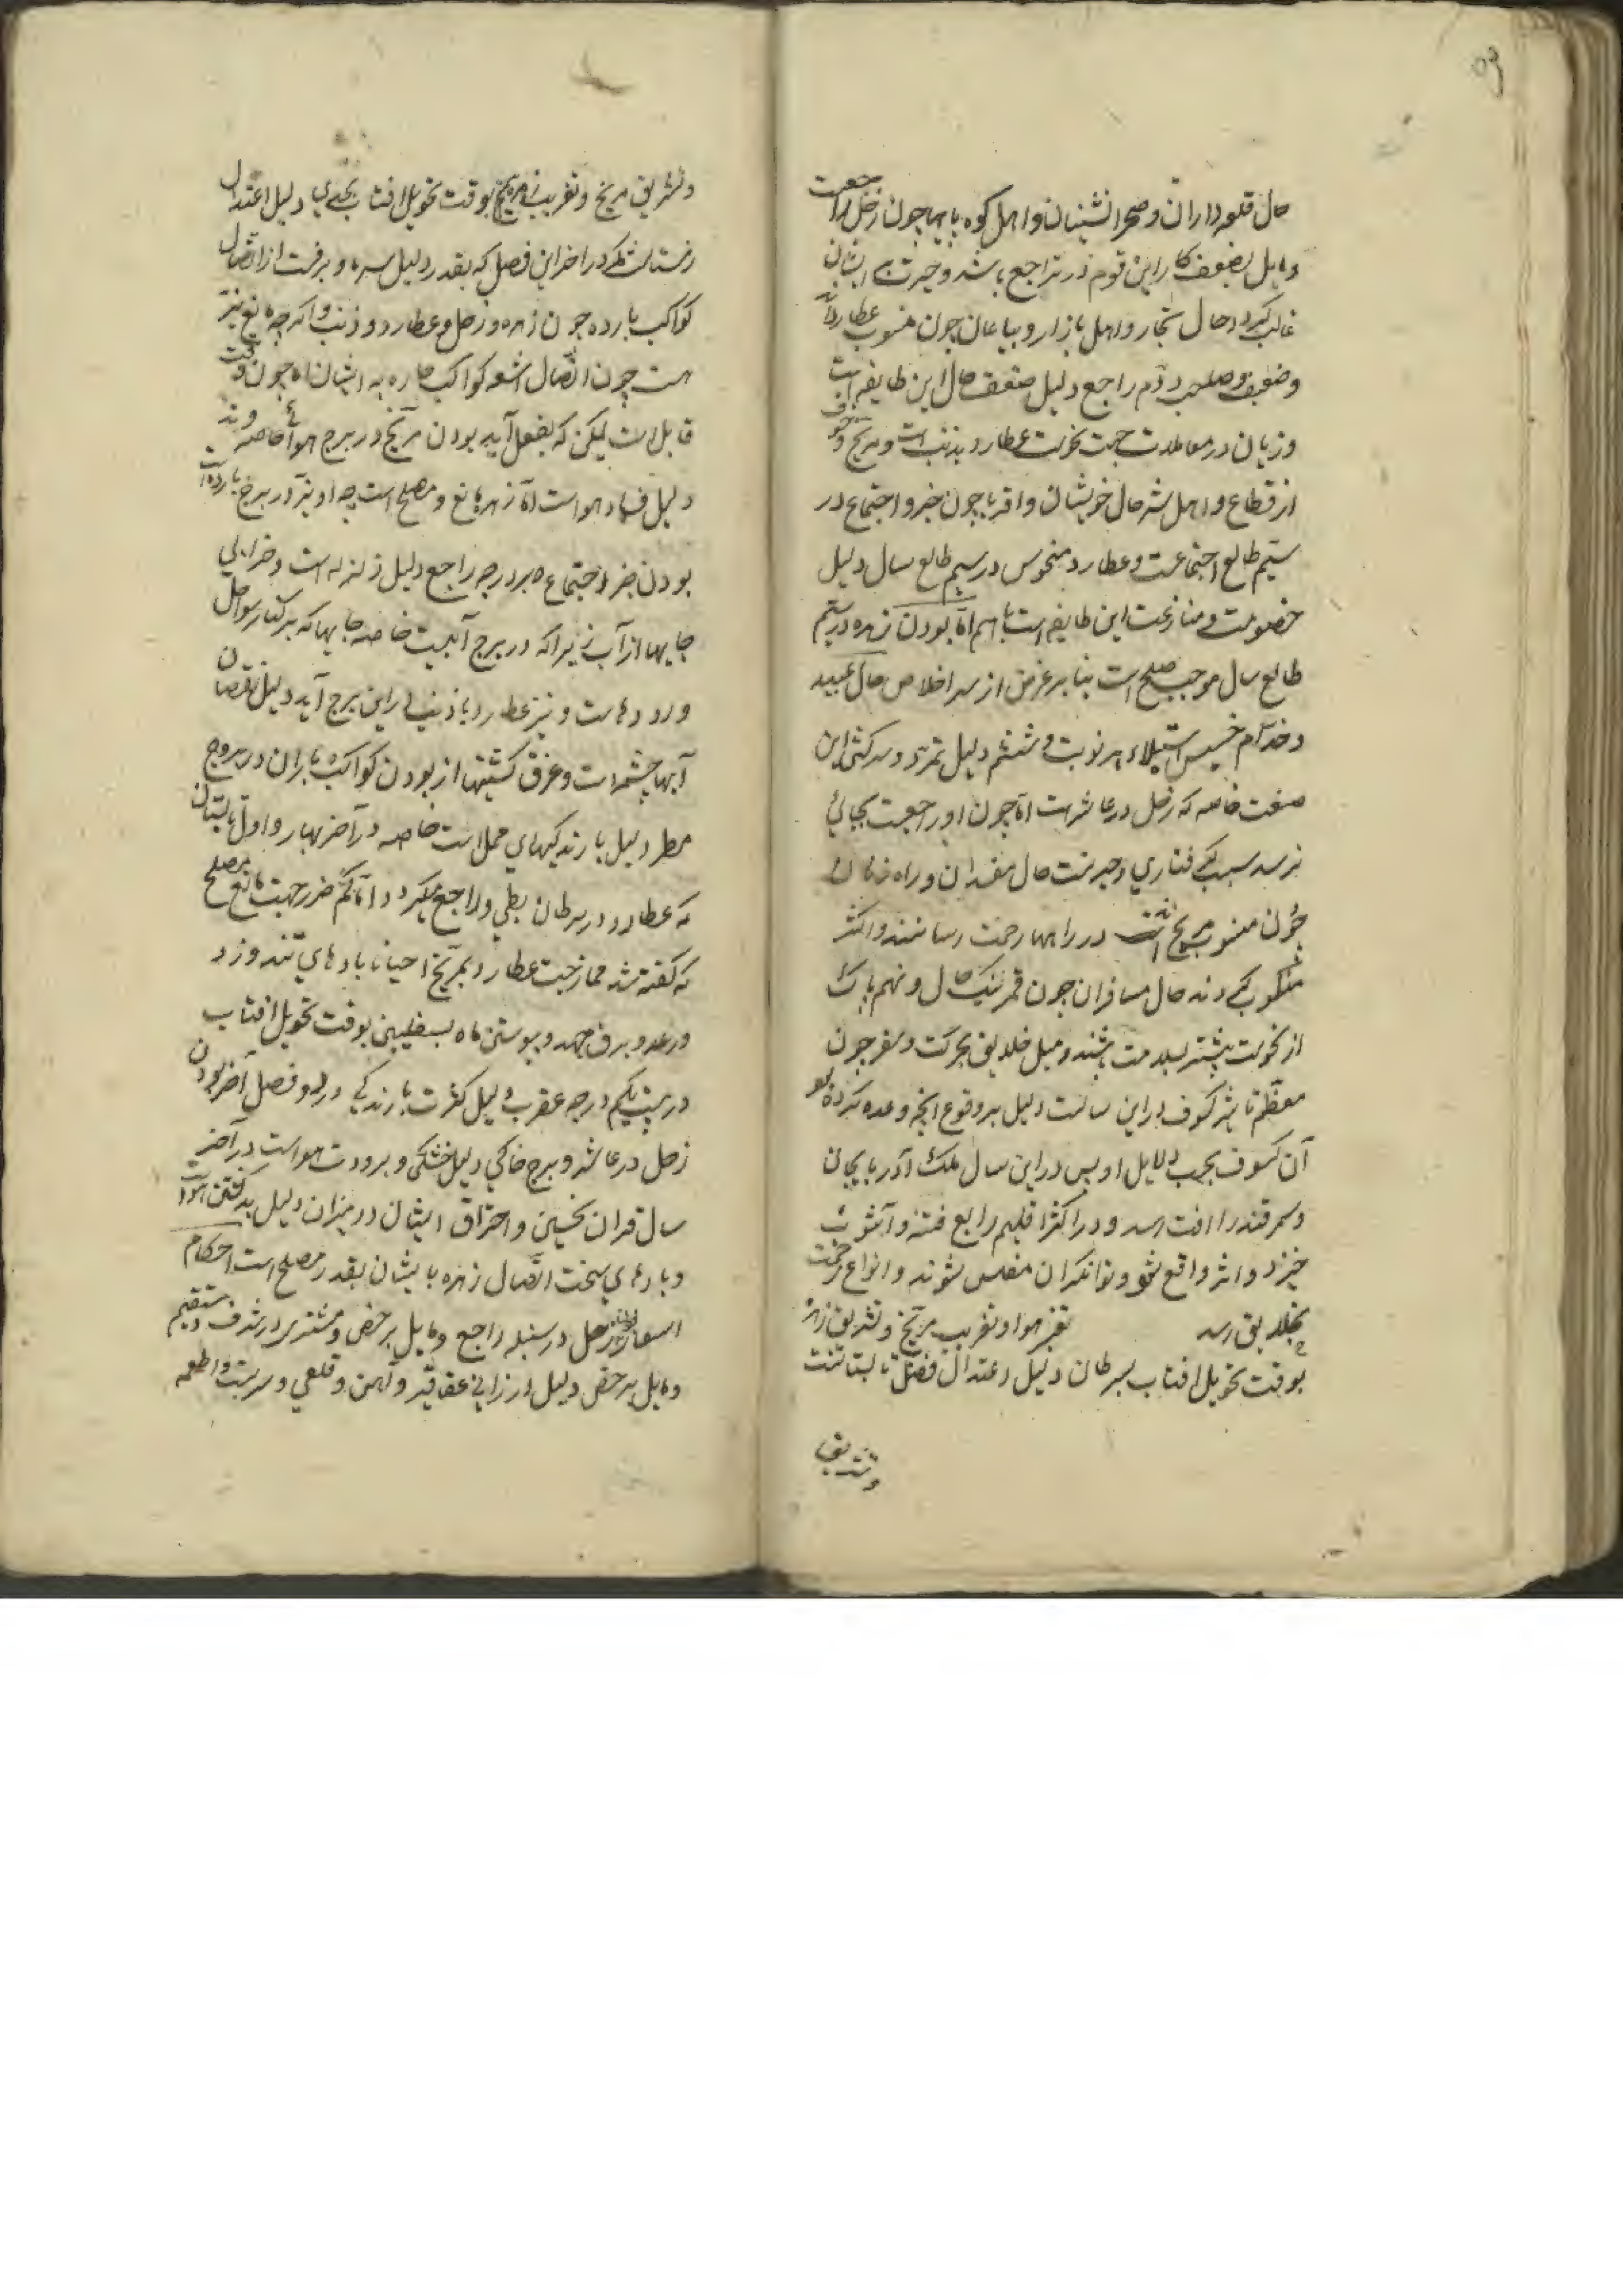 حال قلعه داران وصحرانشینان واهل کوه پایها چون زحل راجعست
ومایل بضعف کار این قوم در تراجع باشد وحیرت بر ایشان
غالب کردد حال تجار واهل بازار وبیاعان چون منسوب عطارد
وضعیف وصاحب دوم راجع دلیل ضعف حال این طایفه است
وزیان در معاملات جهت نحوست عطارد بذنب است ومریخ وخوف
از قطاع واهل شر حال خویشان واقربا چون جزو اجتماع در
سیم طالع اجتماعست وعطارد منحوس در سیم طالع سال دلیل
خصومت ومنازعت این طایفه است باهم اما بودن زهره در سیم
طالع سال موجب صلح است بنا بر غرض از سر اخلاص حال عبید
وخدام خسیس استیلاء بر نوبت وششم دلیل تمرد وسرکشی این
صنعت خاصه که زحل در عاشر است اما چون او راجعست بجائی
نرسد سبب کرفتاری وحیرتست حال مفسدان وراه زنان
چون منسوب مریخ است در راهها زحمت رسانند واکثر
منکوب کردند حال مسافران چون قمر نیک حال ونهم پاک
از نحوست بیشتر بسلامت باشند ومیل خلایق بحرکت وسفر چون
معظم تاثیر کسوف در این سالست دلیل بر وقوع انچه وعده کرده بود
آن کسوف بحسب دلایل او پس در این سال ملک آذربایجان
وسمرقند را افت رسد ودر اکثر اقلیم رابع فتنه وآشوب
خیزد واثر واقع شود وتوانکران مفلس شوند وانواع زحمت
بخلایق رسد تغیر هوا وتغریب مریخ وتشریق زهره
بوقت تحویل افتاب بسرطان دلیل اعتدال فصل تابستانست
وتشریق
وتشریق مریخ وتغریب زهره بوقت تحویل افتاب بجدی دلیل اعتدال
زمستانست مکر در اخر این فصل که بقدر دلیل سرما وبرفست از اتصال
کواکب بارده چون زهره وزحل وعطارد وذنب واکرچه مانع نیز
هست چون اتصال اشعه کواکب حاره به ایشان اما چون وقت
قابل است لیکن که بفعل آید بودن مریخ در برج هوائی خاصه وتد
دلیل فساد هواست اما زهره مانع ومصلح است چه او نیز در برج بارد است
بودن جزو اجتماع در درجه راجع دلیل زلزله است وخرابی
جایها از آب زیرا که در برج آبیست خاصه جایها که بر کنار سواحل
ورودهاست ونیز عطارد با ذنب در این برج آید دلیل نقصان
آبها چشمهاست وغرق کشتیها از بودن کواکب باران در بروج
مطر دلیل بارندکیهای محل است خاصه در آخر بهار واول تابستان
که عطارد در سرطان بطی وراجع میکردد اما کم ضرر جهت مانع مصلح
که کفته شد ممازجت عطارد بمریخ احیانا بادهای تند وزد
ورعد وبرق جهد وپیوستن ماه بسفلیین بوقت تحویل افتاب
در بیست یکم درجه عقرب دلیل کثرت بارندکی در دو فصل آخر بودن
زحل در عاشر وبرج خاکی دلیل خشکی وبرودت هواست در آخر
سال قران نحسین واحتراق ایشان در میزان دلیل بد کشتن هوا
وبادهای سخت اتصال زهره با یشان بقدر مصلح است احکام
اسعار بودن زحل در سنبله راجع ومایل بر حض ومشتری در شرف ومستقیم
ومایل بر حض دلیل ارزانی عقاقیر وآهن وقلعی وسربست واطعمه